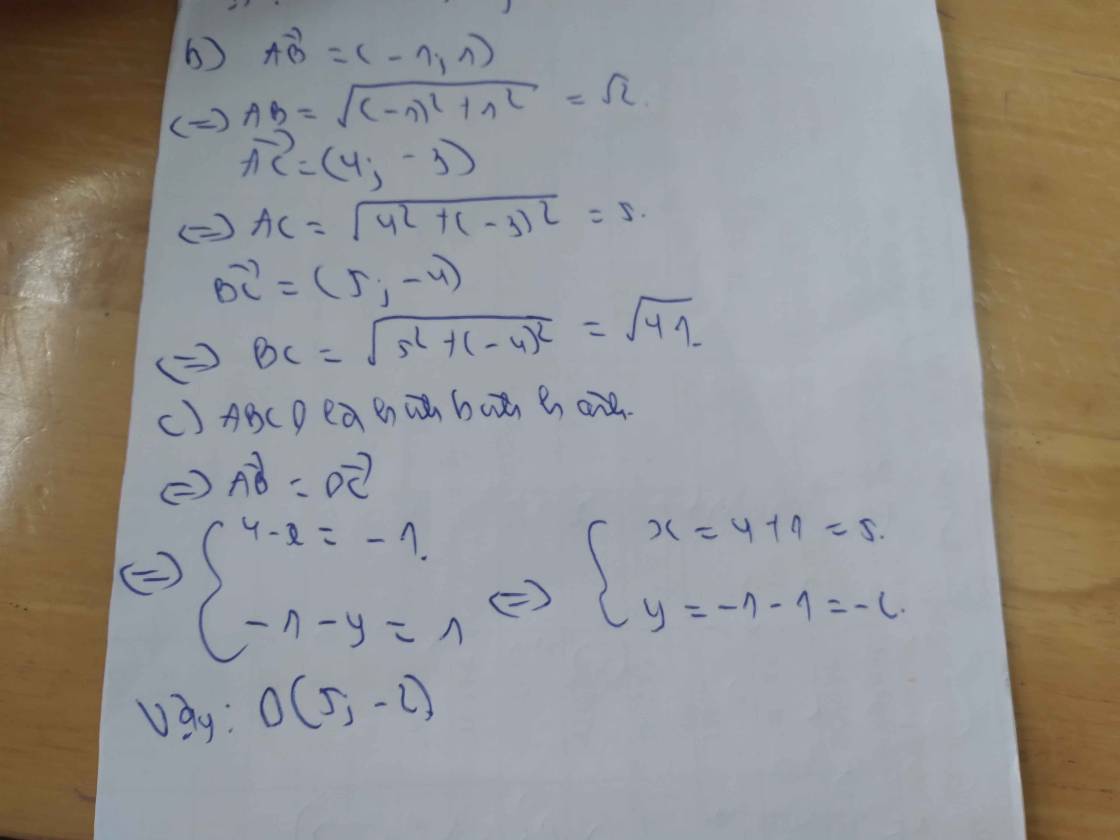 b) \overrightarrow{AB} = (-1; 1)
<=> AB = √((-1)² + 1²) = √2.
\overrightarrow{AC} = (4; -3)
<=> AC = √(4² + (-3)²) = 5.
\overrightarrow{BC} = (5; -4)
<=> BC = √(5² + (-4)²) = √41.
c) ABCD là hình bình hành.
<=> \overrightarrow{AB} = \overrightarrow{DC}
<=> { 4 - x = -1. <=> { x = 4 + 1 = 5.
-1 - y = 1 y = -1 - 1 = -2.
Vậy: D(5; -2)